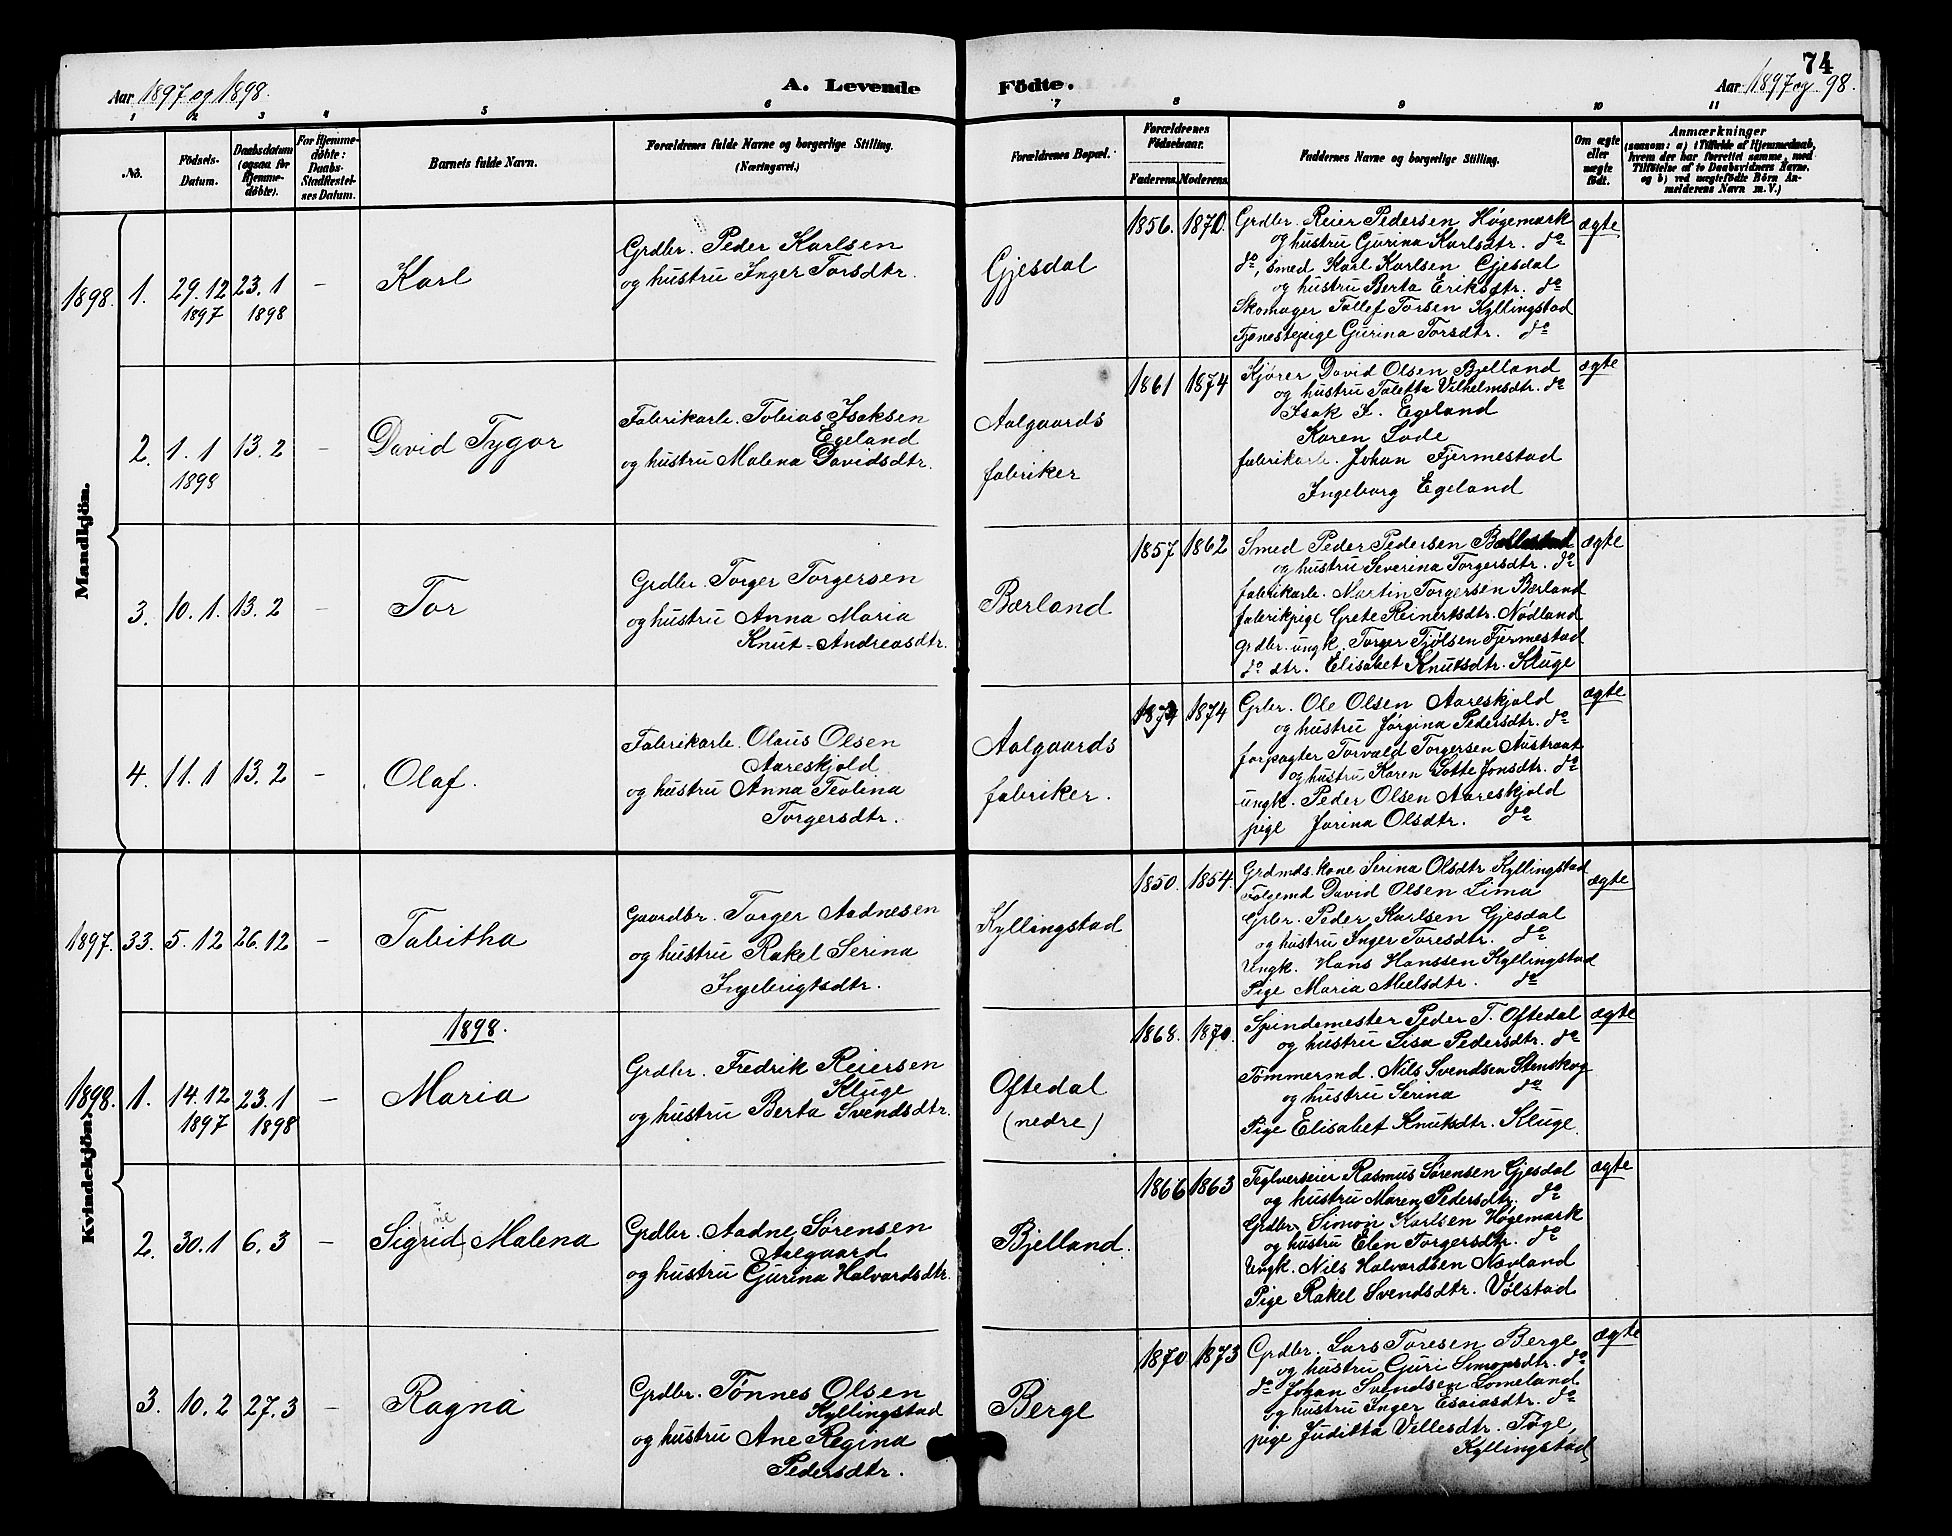 74
Aar 1897 og 1898.
A. Levende Födte.
Aar 1897 og 98.
1 2 3 4 5 6 7 8 9 10 11
No.
Födsels-
Datum.
Daabsdatum
(ogsaa for
Hjemme-
döbte).
For Hjemme-
döbte:
Daabs-
Stadfæstel-
ses Datum.
Barnets fulde Navn.
Forældrenes fulde Navne og borgerlige Stilling.
(Næringsvei.)
Forældrenes Bopæl.
Forældrenes
Födselsaar.
Faderens. Moderens.
Faddernes Navne og borgerlige Stilling.
Om ægte
eller
uægte
födt.
Anmærkninger
(saasom: a) i Tilfælde af Hjemmedaab,
hvem der har forrettet samme, med
Tilföielse af to Daabsvidners Navne,
og b) ved uægtefödte Börn An-
melderens Navn m. V.)
Mandkjön.
1898. 1. 29.12 23.1 – Karl
1897 1898
Grdbr. Peder Karlsen
og hustru Inger Torsdtr.
Gjesdal
1856. 1870.
Grdbr. Reier Pedersen Høgemark
og hustru Gurina Karlsdtr. do
do, smed Karl Karlsen Gjesdal
og hustru Berta Eriksdtr. do
Skomager Tollef Torsen Kyllingstad
Tjenestepige Gurina Torsdtr. do
ægte
2. 1.1 13.2 – David Tygor
1898
Fabrikarb. Tobias Isaksen
Egeland
og hustru Malena Davidsdtr.
Aalgaards
fabriker
1861 1874
Kjører David Olsen Bjelland
og hustru Taletta Vilhelmsdtr. do
Isak I. Egeland
Karen Lode
fabrikarb. Johan Fjermestad
Ingeborg Egeland
ægte
3. 10.1. 13.2 – Tor
Grdbr. Torger Torgersen
og hustru Anna Maria
Knut-Andreasdtr.
Bærland
1857 1862
Smed Peder Pedersen
og hustru Severina Torgersdtr. do
fabrikarb. Martin Torgersen Bærland
fabrikpige Grete Reinertsdtr. Nødland
grdbr. ungk. Torger Tjølsen Fjermestad
do dtr. Elisabet Knutsdtr. Kluge
ægte
4. 11.1 13.2 – Olaf.
Fabrikarb. Olaus Olsen
Aareskjold
og hustru Anna Teolena
Torgersdtr.
Aalgaards
fabriker.
1874
Grbr. Ole Olsen Aareskjold
og hustru Jørgina Pedersdtr. do
forpagter Torvald Torgersen Austraat
og hustru Karen Lotte Jonsdtr. do
ungk. Peder Olsen Aareskjold
pige Jorina Olsdtr. do
ægte
Kvindekjön.
1897. 33. 5.12 26.12 – Tabitha
Gaardbr. Torger Aadnesen
og hustru Rakel Serina
Ingebrigtsdtr.
Kyllingstad
1850. 1854.
Grdmds. kone Serina Olsdtr Kyllingstad
Følgemd David Olsen Lima
Grbr. Peder Karlsen Gjesdal
og hustru Inger Toresdtr. do
Ungk. Hans Hanssen Kyllingstad
Pige Maria do
ægte
1898.
1898. 1. 14.12 23.1 – Maria
1897 1898
Grdbr. Fredrik Reiersen
Kluge
og hustru Berta Svendsdtr.
Oftedal
(nedre)
1868. 1870.
Spindemester Peder T. Oftedal
og hustru Lisa Pedersdtr. do
Tømmermd. Nils Svendsen Stenskog
og hustru Serina do
Pige Elisabet Knutsdtr. Kluge.
ægte
2. 30.1 6.3 – Sigrid (ne) Malena
Grdbr. Aadne Sørensen
Aalgaard
og hustru Gurina Halvardsdtr.
Bjelland.
1866 1863
Teglverseier Rasmus Sørensen Gjesdal
og hustru Maren Pedersdtr. do
Grdbr. Simon Karlsen Høgemark
og hustru Elen Torgersdtr. do
Ungk. Nils Halvardsen Novland
Pige Rakel Svendsdtr. Vølstad
ægte
3. 10.2 27.3 – Ragna
Grdbr. Tønnes Olsen
Kyllingstad
og hustru Ane Regina
Pedersdtr.
Berge
1870 1873
Grdbr. Lars Toresen Berge
og hustru Guri Simonsdtr. do
do Johan Svendsen Lomeland
og hustru Inger Esaiasdtr. do
pige Juditta Villesdtr. Tøge,
Kyllingstad
ægte